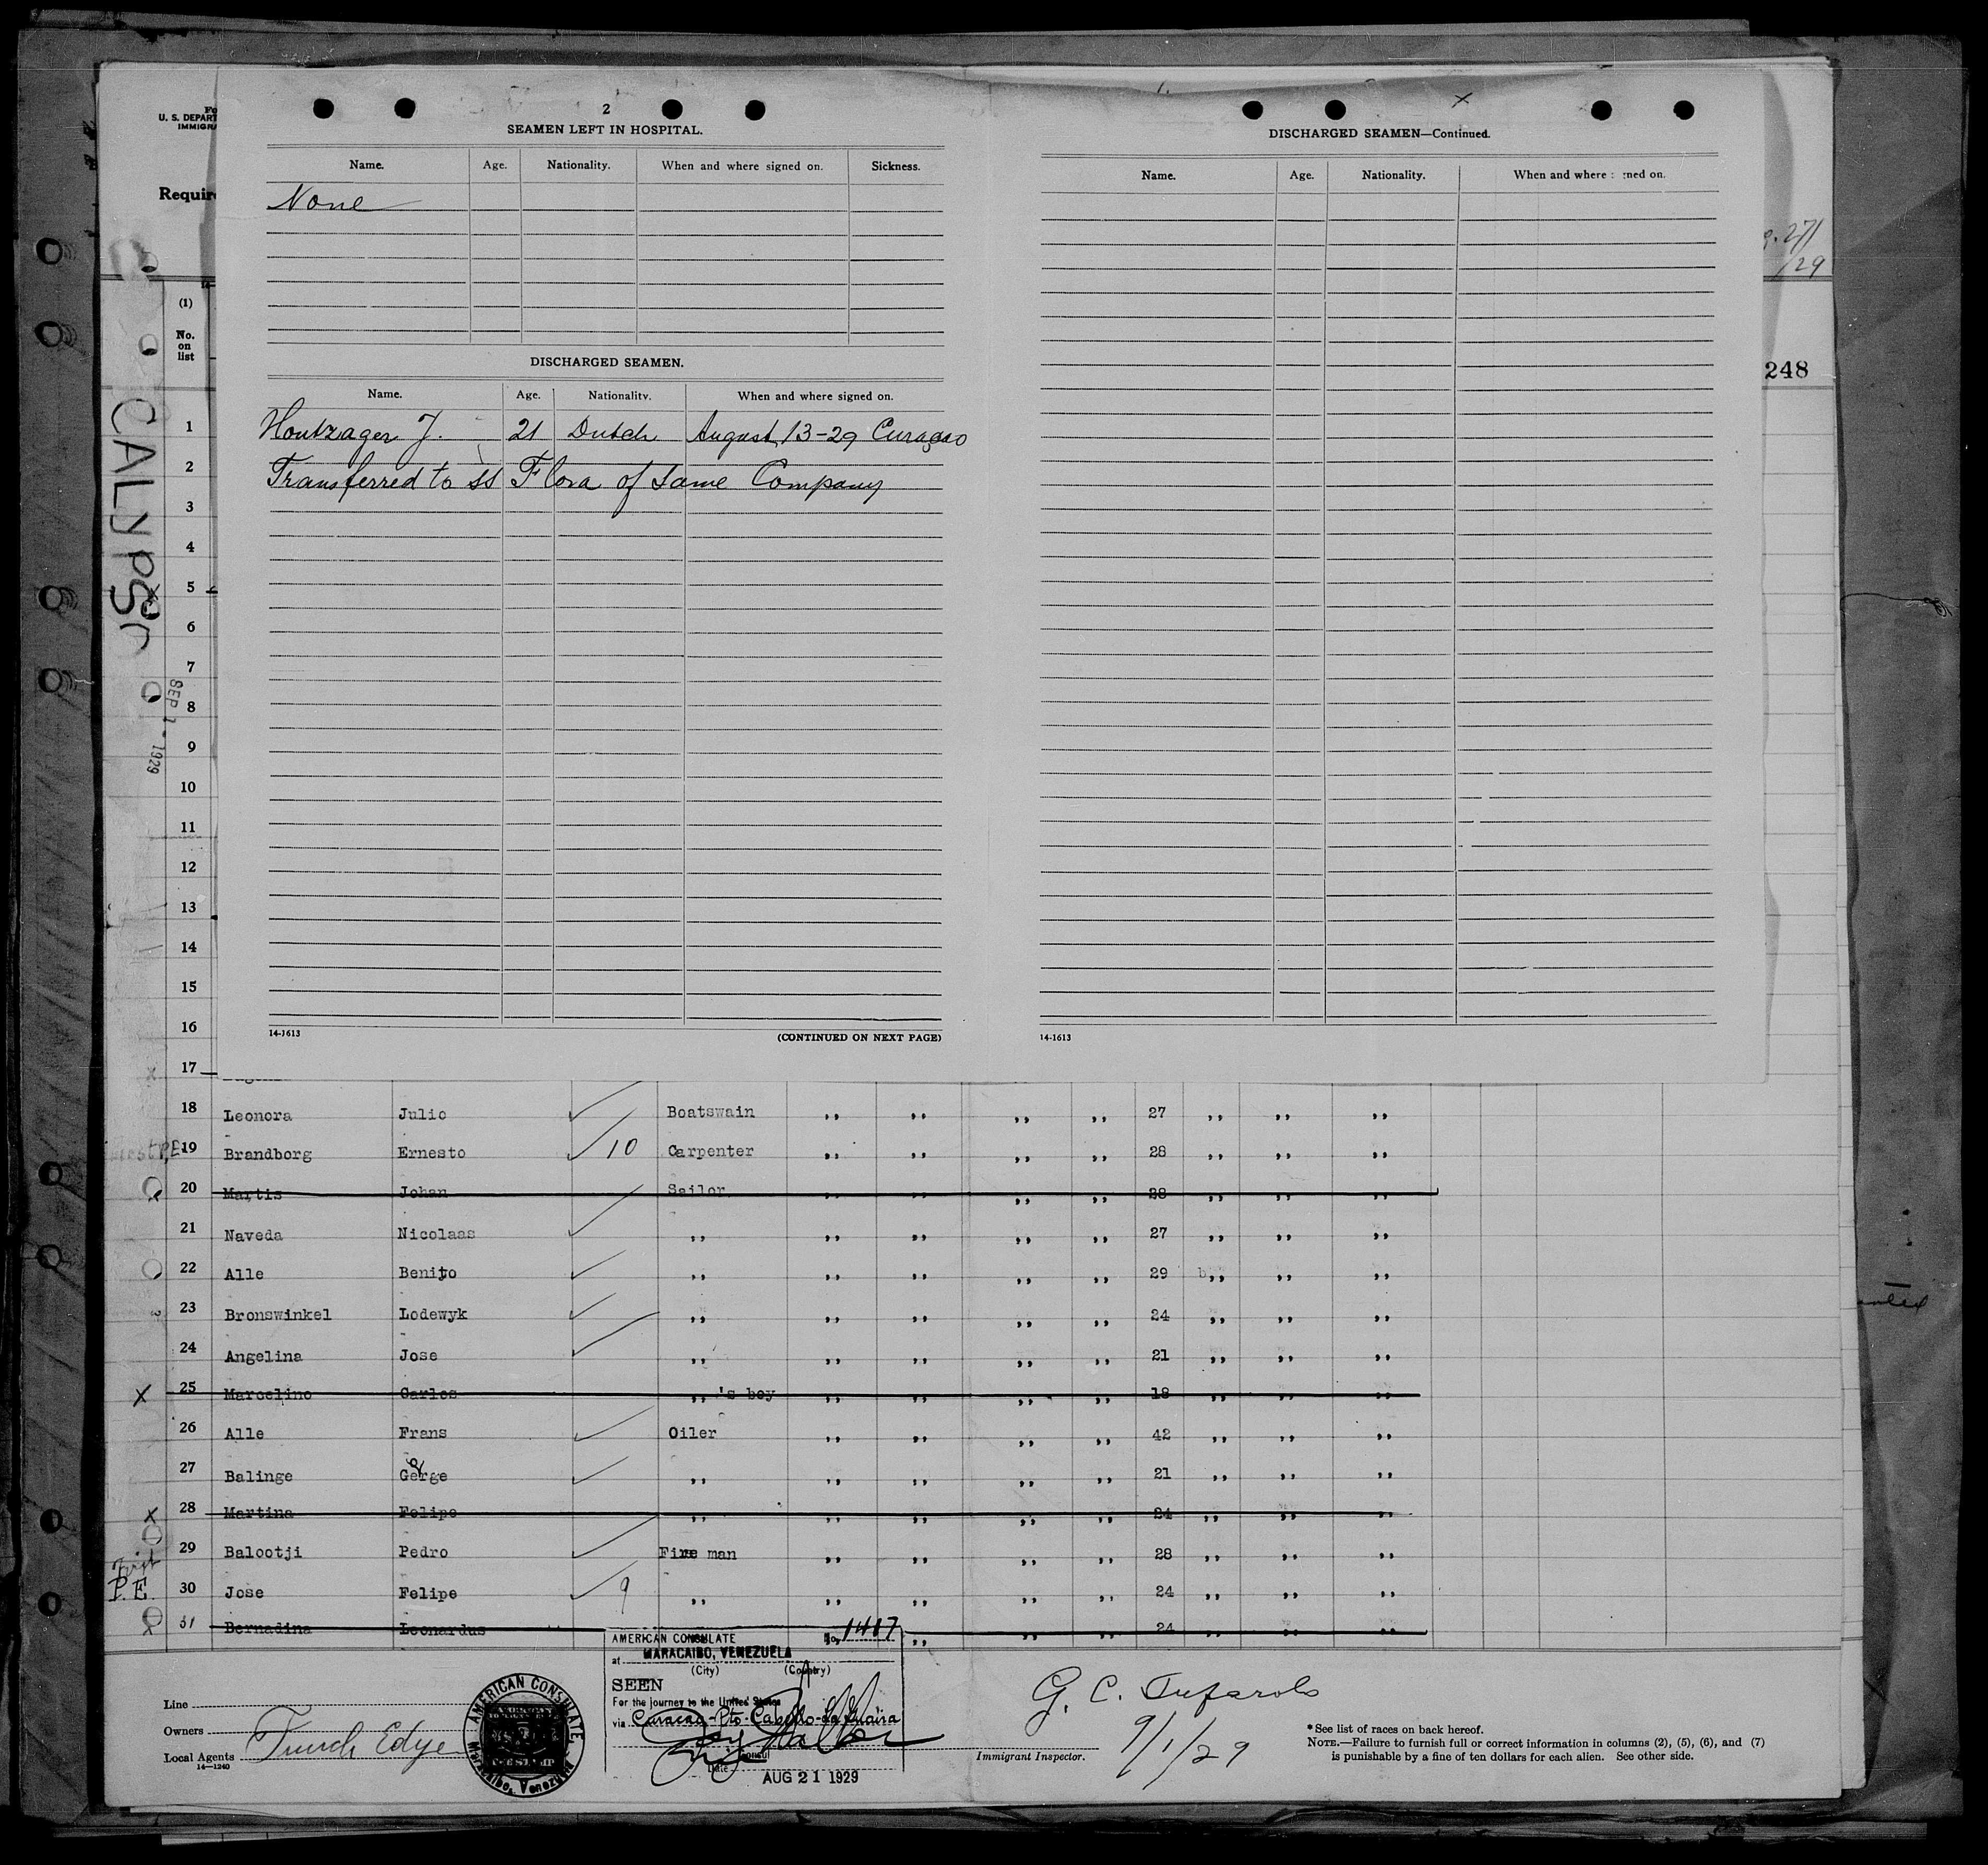 Fo
U. S. DEPART
IMMIGRA
Require
2
SEAMEN LEFT IN HOSPITAL.
Name. Age. Nationality. When and where signed on. Sickness.
None
DISCHARGED SEAMEN.
Name. Age. Nationality. When and where signed on.
Houtzager J. 21 Dutch August 13-29 Curaçao
Transferred to ss Flora of Same Company
14-1613
(CONTINUED ON NEXT PAGE)
DISCHARGED SEAMEN—Continued.
Name. Age. Nationality. When and where : ned on.
14-1613
271
/29
248
(1)
No.
on
list
CALYPSO
SEP 1 - 1929
1
2
3
4
5
6
7
8
9
10
11
12
13
14
15
16
17
18 Leonora Julio Boatswain ,, ,, ,, ,, 27 ,, ,, ,,
P.E. 19 Brandborg Ernesto 10 Carpenter ,, ,, ,, ,, 28 ,, ,, ,,
20 Martis Johan Sailor ,, ,, ,, ,, 28 ,, ,, ,,
21 Naveda Nicolaas ,, ,, ,, ,, ,, 27 ,, ,, ,,
22 Alle Benito ,, ,, ,, ,, ,, 29 ,, ,, ,,
23 Bronswinkel Lodewyk ,, ,, ,, ,, ,, 24 ,, ,, ,,
24 Angelina Jose ,, ,, ,, ,, ,, 21 ,, ,, ,,
X 25 Marcelino Carlos ,, 's boy ,, ,, ,, ,, 18 ,, ,, ,,
26 Alle Frans Oiler ,, ,, ,, ,, 42 ,, ,, ,,
27 Balinge George ,, ,, ,, ,, ,, 21 ,, ,, ,,
X 28 Martina Felipe ,, ,, ,, ,, ,, 24 ,, ,, ,,
29 Balootji Pedro Fire man ,, ,, ,, ,, 28 ,, ,, ,,
First
P.E. 30 Jose Felipe 9 ,, ,, ,, ,, ,, 24 ,, ,, ,,
31 Bernadina Leonardus ,, ,, ,, 24 ,, ,, ,,
Line
Owners
Local Agents Funch Edye
14—1240
AMERICAN CONSULATE
Maracaibo, Venezuela
AMERICAN CONSULATE No. 1417
at MARACAIBO, VENEZUELA
(City) (Country)
SEEN
For the journey to the United States
via Curacao-Pto-Cabello-La Guaira
Consul
Date
AUG 21 1929
G. C.
Immigrant Inspector.
9/1/29
*See list of races on back hereof.
NOTE.—Failure to furnish full or correct information in columns (2), (5), (6), and (7)
is punishable by a fine of ten dollars for each alien. See other side.